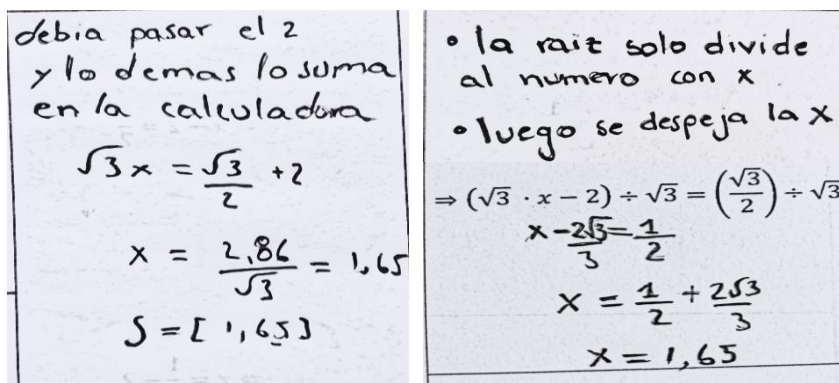 debia pasar el 2
y lo demas lo suma
en la calculadora
√3x = √3/2 + 2
x = 2,86/√3 = 1,65
S = [ 1,65 ]
• la raiz solo divide
al numero con x
• luego se despeja la x
⇒ (√3 · x − 2) ÷ √3 = (√3/2) ÷ √3
x − 2√3/3 = 1/2
x = 1/2 + 2√3/3
x = 1,65